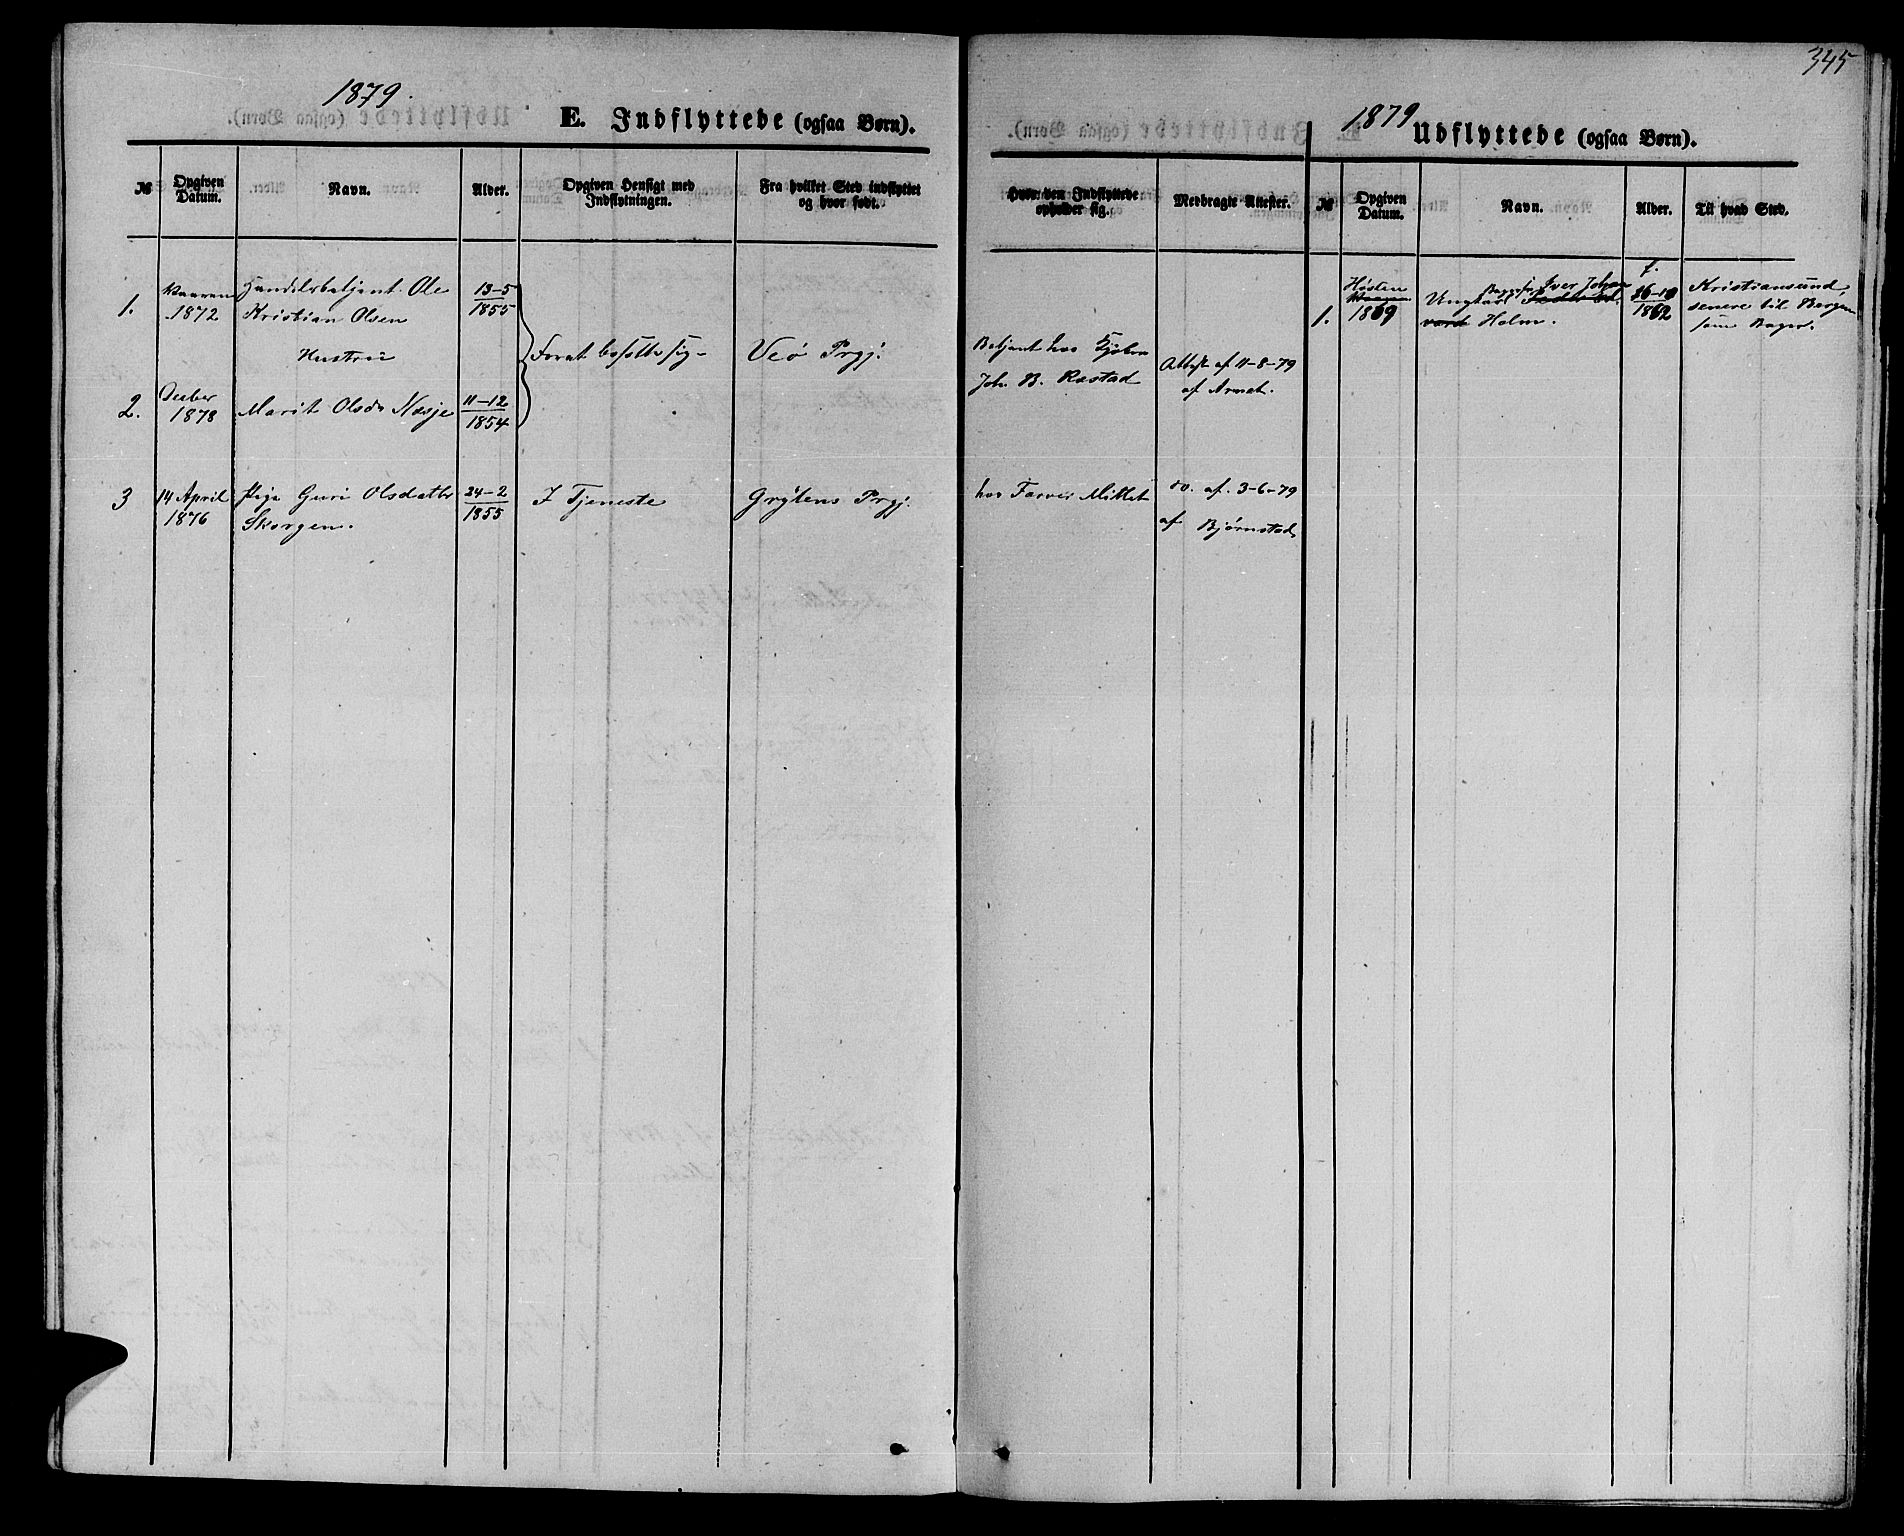 345
1879.
E. Indflyttede (ogsaa Børn).
№
Opgiven Datum.
Navn.
Alder.
Opgiven Hensigt med Indflytningen.
Fra hvilket Sted indflyttet og hvor født.
1.
Vaaren 1872
Handelsbetjent Ole
Kristian Olsen
13-5
1855
Hustru
Forat bosætte sig
Veø Prgj.
2.
Decber 1878
Marit Olsdr Næsje
11-12
1854
3
14 April 1876
Pige Guri Olsdatter
Skorgen.
24-2
1855
I Tjeneste
Grytens Prgj.
1879
Udflyttede (ogsaa Børn).
Hvor den Indflyttede opholder sig.
Medbragte Attester.
№
Opgiven Datum.
Navn.
Alder.
Til hvad Sted.
Betjent hos Kjøbm
Joh. B. Røstad
Attest af 11-8-79
af
hos Farver Mittet
do. af. 3-6-79
af Bjørnstad
1.
Høsten
1869
Ungkarl
Iver Johan
Holm.
f.
26-10
1862
Kristiansund,
senere til Bergen
som Bager.